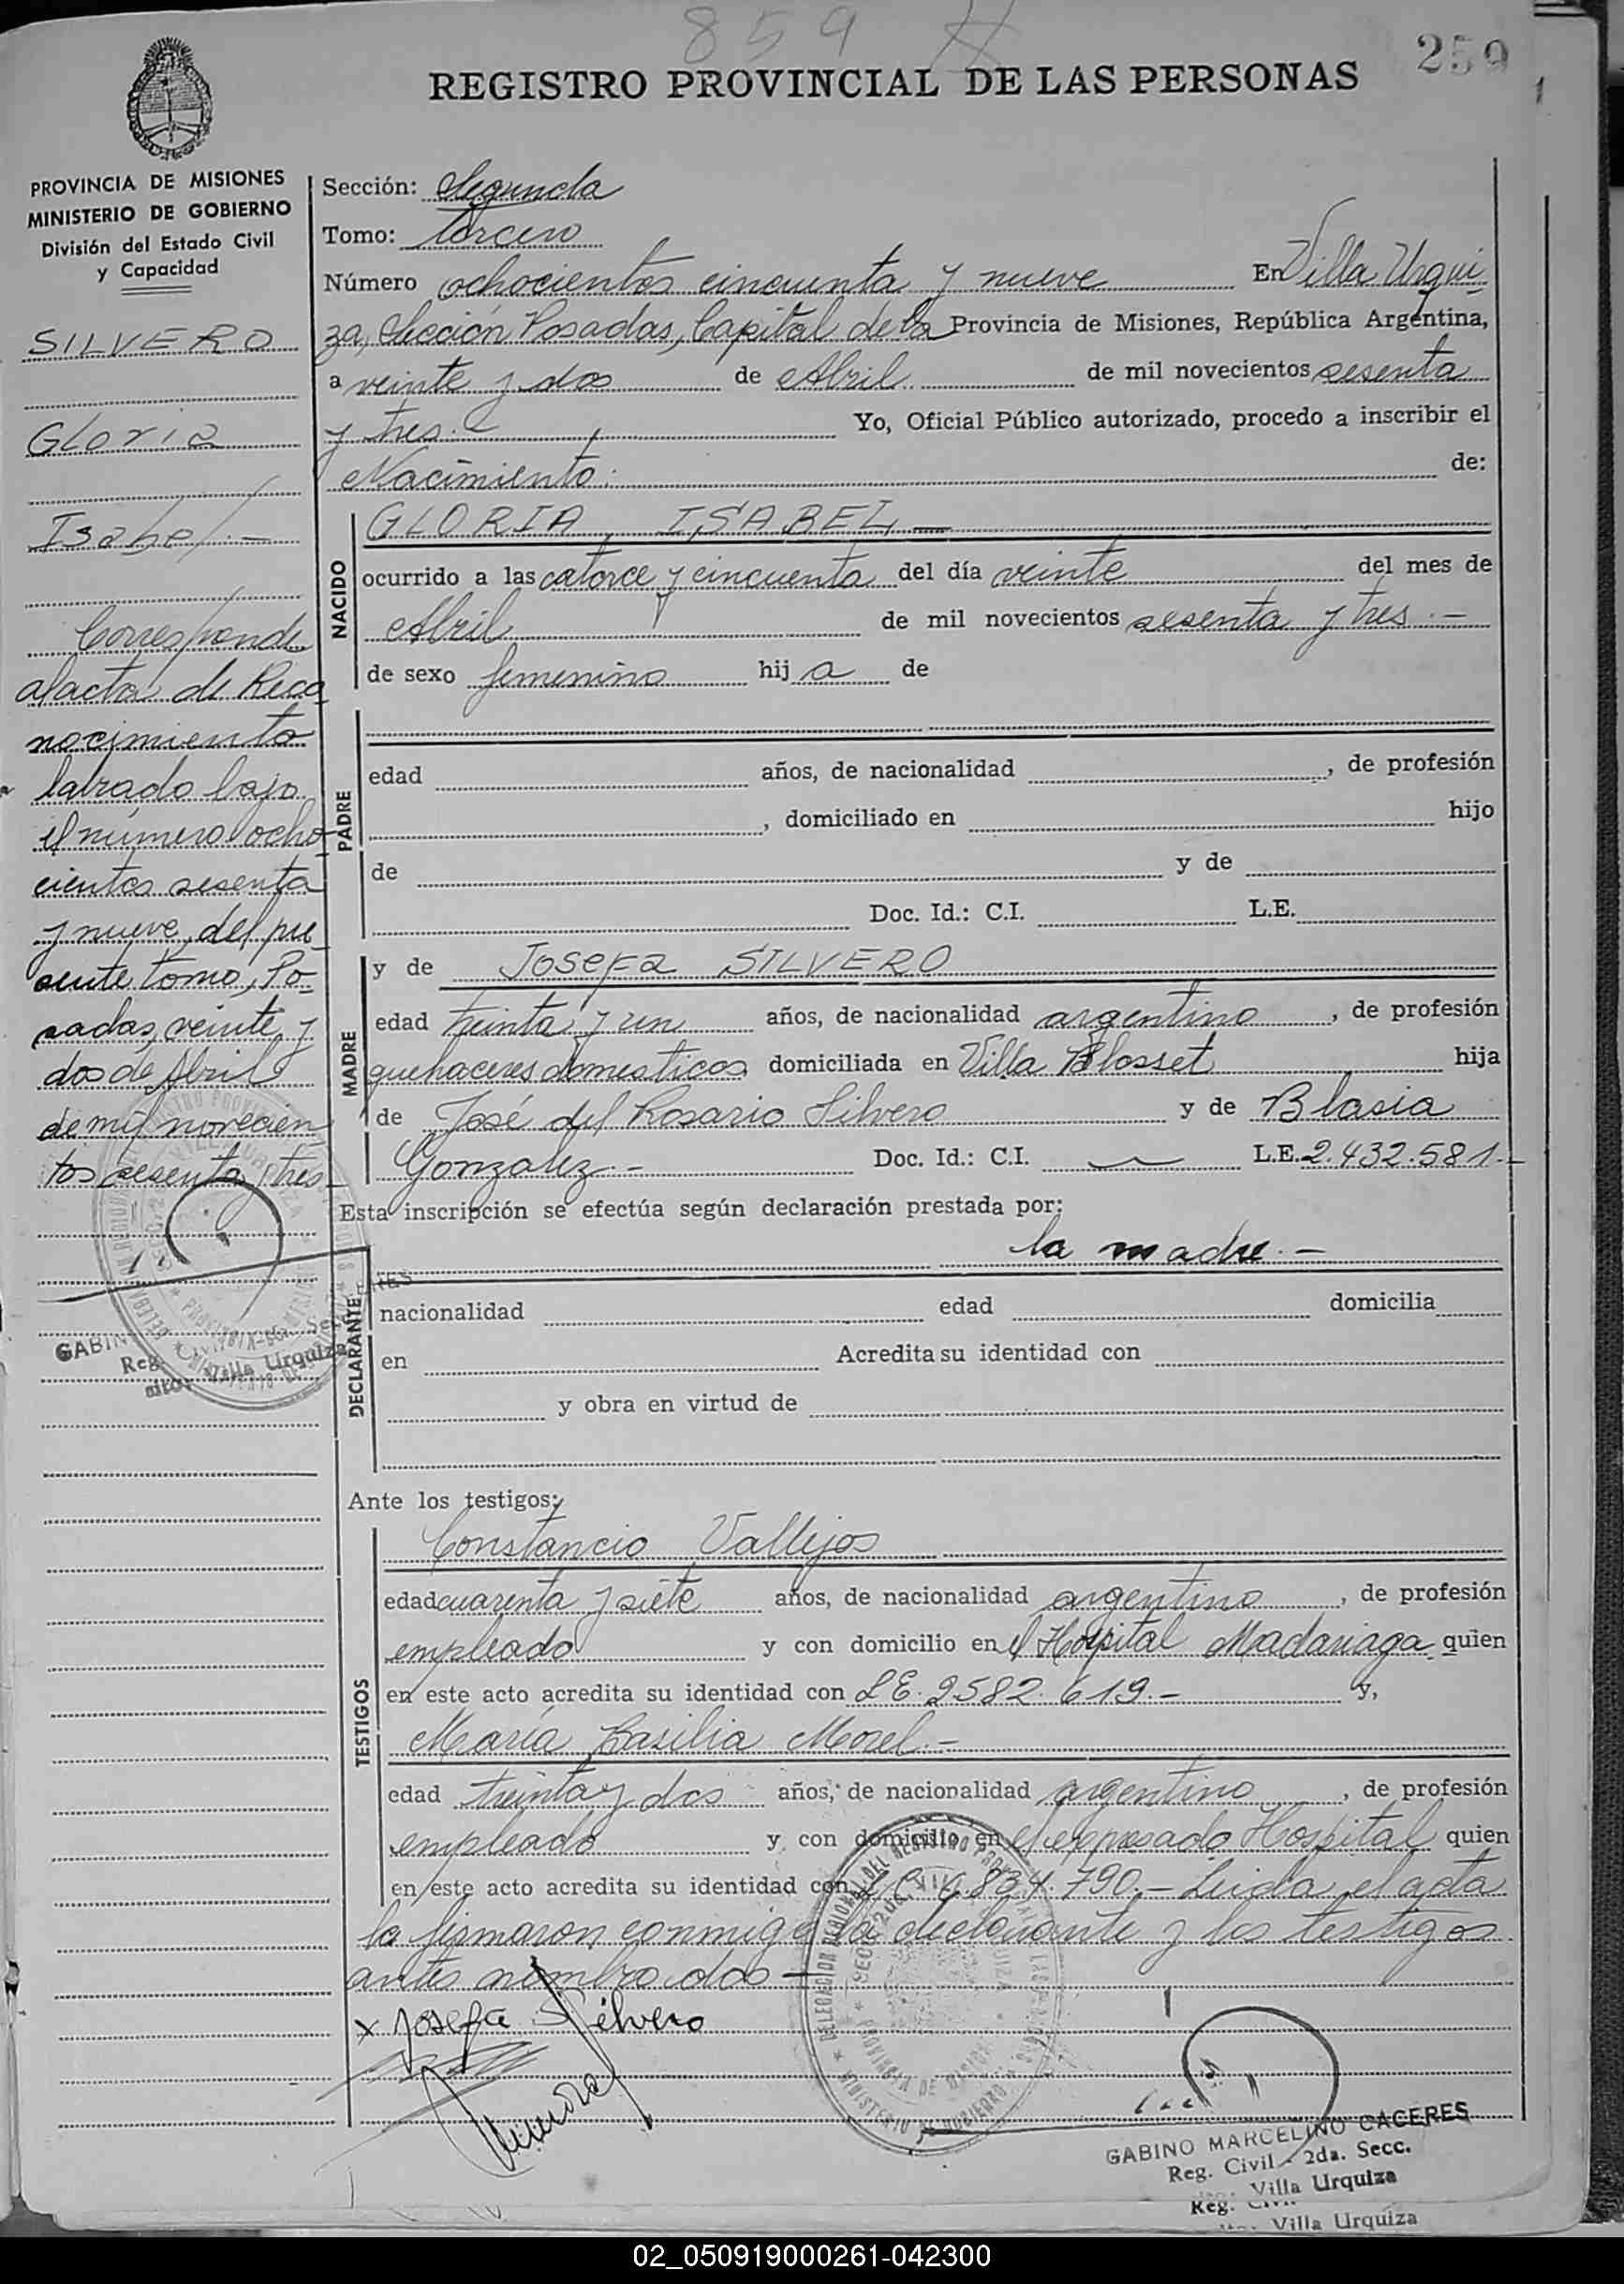 859
259
REGISTRO PROVINCIAL DE LAS PERSONAS
PROVINCIA DE MISIONES
MINISTERIO DE GOBIERNO
División del Estado Civil
y Capacidad
SILVERO
Gloria
Isabel.-
Corresponde
al acta de Reco
nocimiento
labrado bajo
el número ocho
cientos sesenta
y nueve, del pre-
sente tomo, Po-
sadas, veinte y
dos de Abril
de mil novecien
tos sesenta y tres-
GABIN
Reg.
Villa Urquiza
Sección: Segunda
Tomo: tercero
Número ochocientos cincuenta y nueve En Villa Urqui-
za, Sección Posadas, Capital de la Provincia de Misiones, República Argentina,
a veinte y dos de Abril de mil novecientos sesenta
y tres.- Yo, Oficial Público autorizado, procedo a inscribir el
Nacimiento: de:
NACIDO
GLORIA ISABEL
ocurrido a las catorce y cincuenta del día veinte del mes de
Abril de mil novecientos sesenta y tres.-
de sexo femenino hij a de
PADRE
edad años, de nacionalidad , de profesión
, domiciliado en hijo
de y de
Doc. Id.: C.I. L.E.
MADRE
y de Josefa SILVERO
edad treinta y un años, de nacionalidad argentino , de profesión
quehaceres domesticos domiciliada en Villa Blosset hija
de José del Rosario Silvero y de Blasia
Gonzalez.- Doc. Id.: C.I. L.E. 2.432.581.-
Esta inscripción se efectúa según declaración prestada por:
la madre.-
DECLARANTE
nacionalidad edad domicilia
en Acredita su identidad con
y obra en virtud de
Ante los testigos:
TESTIGOS
Constancio Vallejos
edad cuarenta y siete años, de nacionalidad argentino , de profesión
empleado y con domicilio en el Hospital Madariaga quien
en este acto acredita su identidad con LE. 2582.619.- y,
María Basilia Morel.-
edad treinta y dos años, de nacionalidad argentino , de profesión
empleado y con domicilio en el expresado Hospital quien
en este acto acredita su identidad con 834.790.- Leida el acta
la firmaron conmigo la declarante y los testigos
antes nombrados-
x Josefa Silvero
GABINO MARCELINO CACERES
Reg. Civil - 2da. Secc.
Villa Urquiza
Reg.
Villa Urquiza
02_050919000261-042300